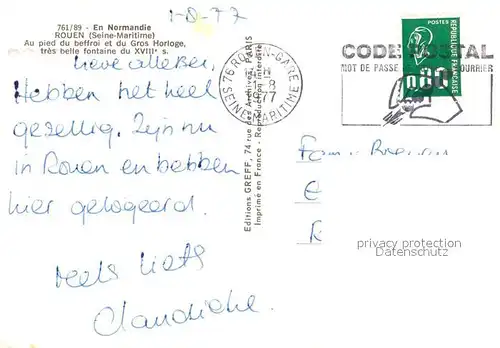 1-8-77
761/89 - En Normandie
ROUEN (Seine-Maritime)
Au pied du beffroi et du Gros Horloge,
très belle fontaine du XVIIIe s.
Lieve allebei,
Hebben het heel
gezellig. Zijn nu
in Rouen en hebben
hier gelogeerd.
veels liefs
Claudieke.
Editions GREFF, 74 rue des Archives, PARIS
Imprimé en France - Reproduction interdite
76 ROUEN-GARE
1-8
1977
SEINE MARITIME
POSTES
REPUBLIQUE FRANÇAISE
0,80
CODE POSTAL
MOT DE PASSE COURRIER
Fam.
privacy protection
Datenschutz